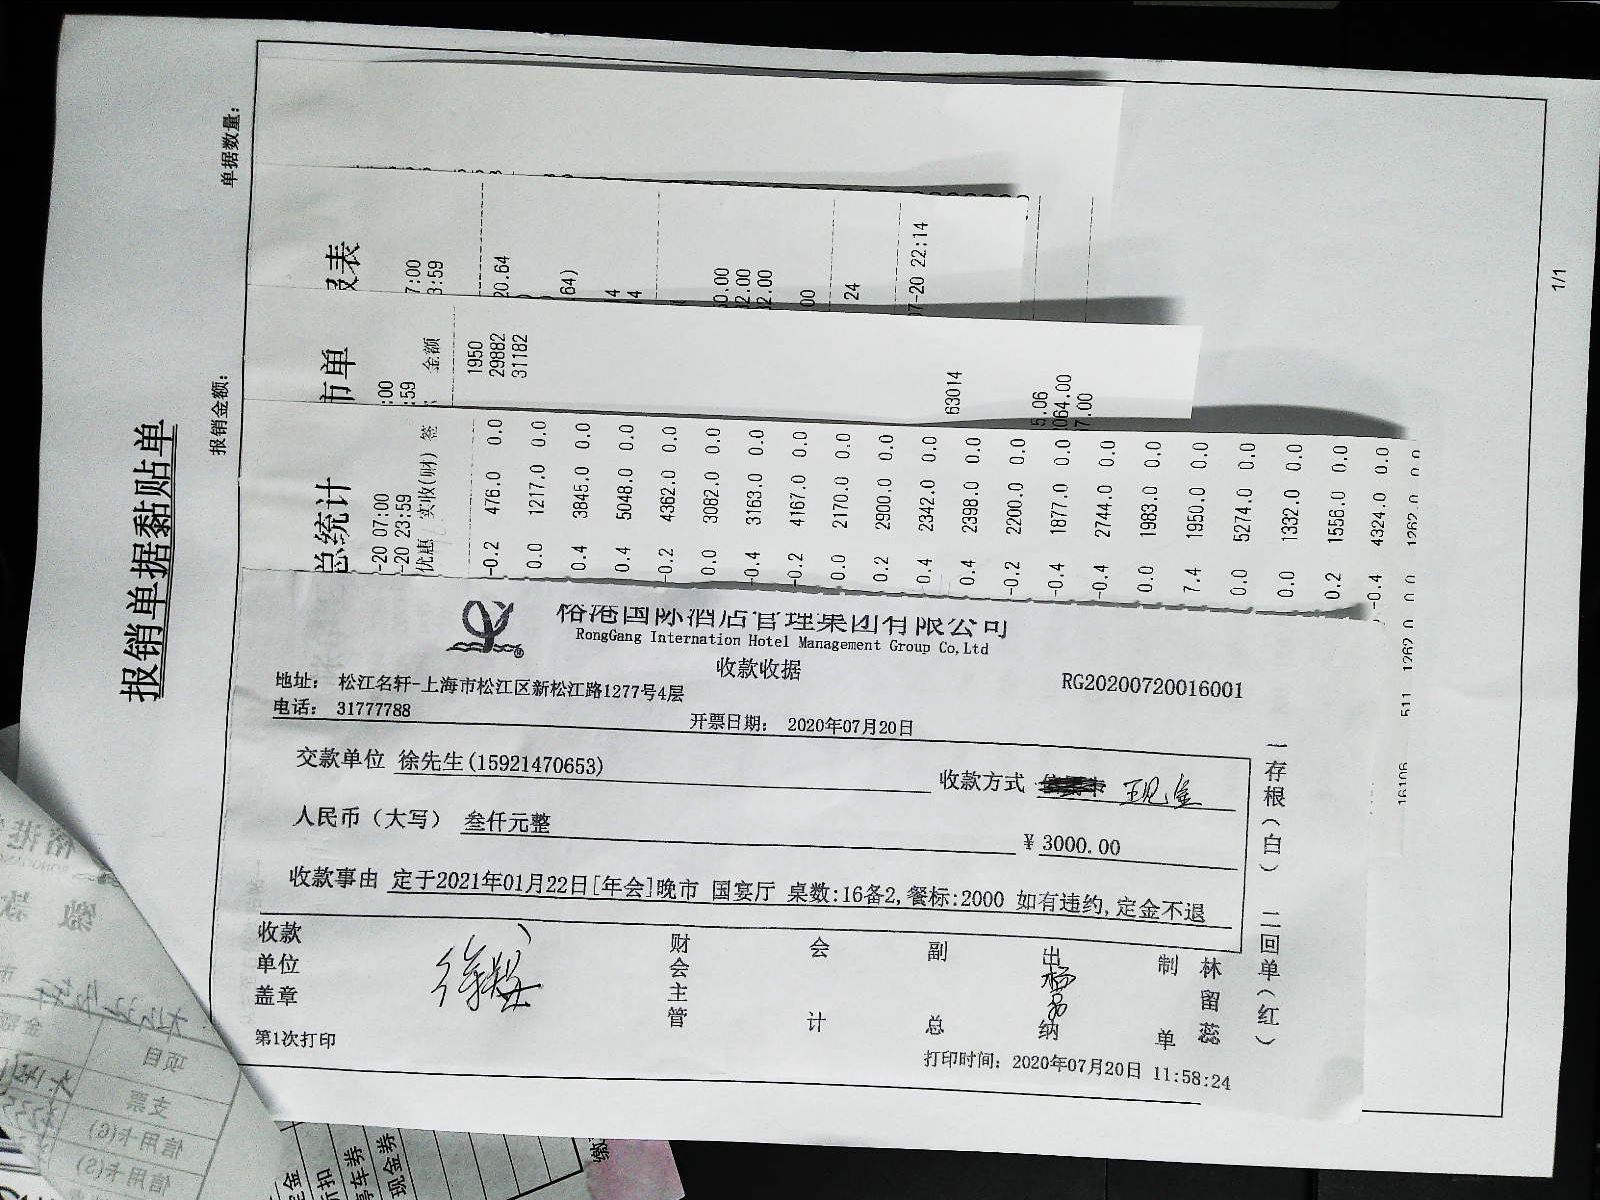 报销单据黏贴单
报销金额：
单据数量：
报表
7:00
3:59
20.64
64)
4
4
0.00
2.00
2.00
00
24
7-20 22:14
市单
:00
:59
金额
1950
29882
31182
63014
5.06
064.00
7.00
总统计
-20 07:00
-20 23:59
优惠 实收(财) 签
-0.2 476.0 0.0
0.0 1217.0 0.0
0.4 3845.0 0.0
0.4 5048.0 0.0
-0.2 4362.0 0.0
0.0 3082.0 0.0
-0.4 3163.0 0.0
-0.2 4167.0 0.0
0.0 2170.0 0.0
0.2 2900.0 0.0
0.4 2342.0 0.0
0.4 2398.0 0.0
-0.2 2200.0 0.0
-0.4 1877.0 0.0
-0.4 2744.0 0.0
0.0 1983.0 0.0
7.4 1950.0 0.0
0.0 5274.0 0.0
0.0 1332.0 0.0
0.2 1556.0 0.0
-0.4 4324.0 0.0
16106 511 1262.0 0.0 1262.0 0.0
裕港国际酒店管理集团有限公司
RongGang Internation Hotel Management Group Co,Ltd
收款收据
地址： 松江名轩-上海市松江区新松江路1277号4层
RG20200720016001
电话： 31777788
开票日期： 2020年07月20日
交款单位 徐先生(15921470653)
收款方式 现金
人民币（大写） 叁仟元整
￥3000.00
收款事由 定于2021年01月22日[年会]晚市 国宴厅 桌数:16备2,餐标:2000 如有违约,定金不退
一存根（白） 二回单（红）
收款单位盖章
财会主管
会计
副总
出纳
制单
林留蕊
第1次打印
打印时间：2020年07月20日 11:58:24
1/1
项目
支票
信用卡(G)
信用卡(S)
现金券